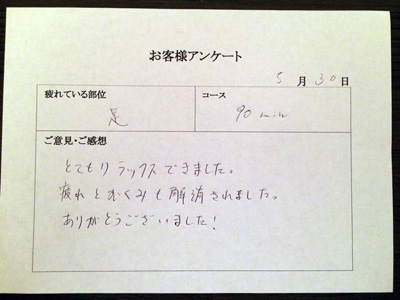 お客様アンケート
5月30日
疲れている部位
コース
足
90 min
ご意見・ご感想
とてもリラックスできました。
疲れとむくみも解消されました。
ありがとうございました！